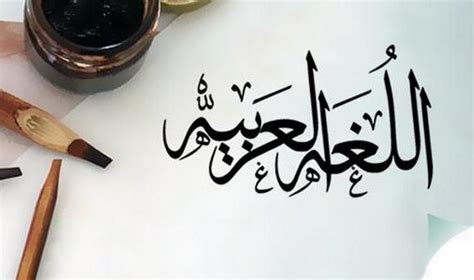 اللُغة العَربية